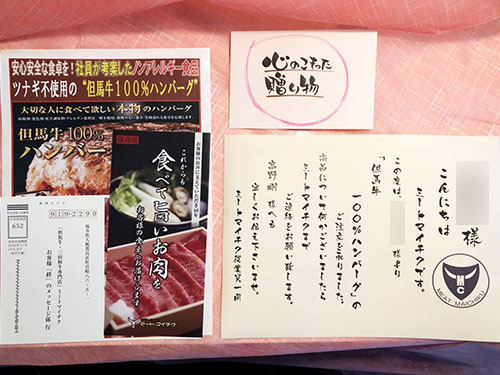 安心安全な食卓を!社員が考案したノンアレルギー食品
ツナギ不使用の“但馬牛100%ハンバーグ”
大切な人に食べて欲しい本物のハンバーグ
但馬牛100%
ハンバーグ
心のこもった
贈り物
これからも
食べて旨いお肉を
お客様の食卓へお届けします
ミートマイチク
9192290
652
「但馬牛・三田和牛専門店」ミートマイチク
お客様「絆」のメッセージ係 行
こんにちは
ミートマイチクです。
この度は、
様より
「但馬牛
100%ハンバーグ」の
ご注文を承りました。
商品について何かございましたら
ミートマイチクまで
ご連絡をお願い致します。
高野剛様へも
宜しくお伝え下さいませ。
ミートマイチク従業員一同
MC
MEAT MAICHIKU